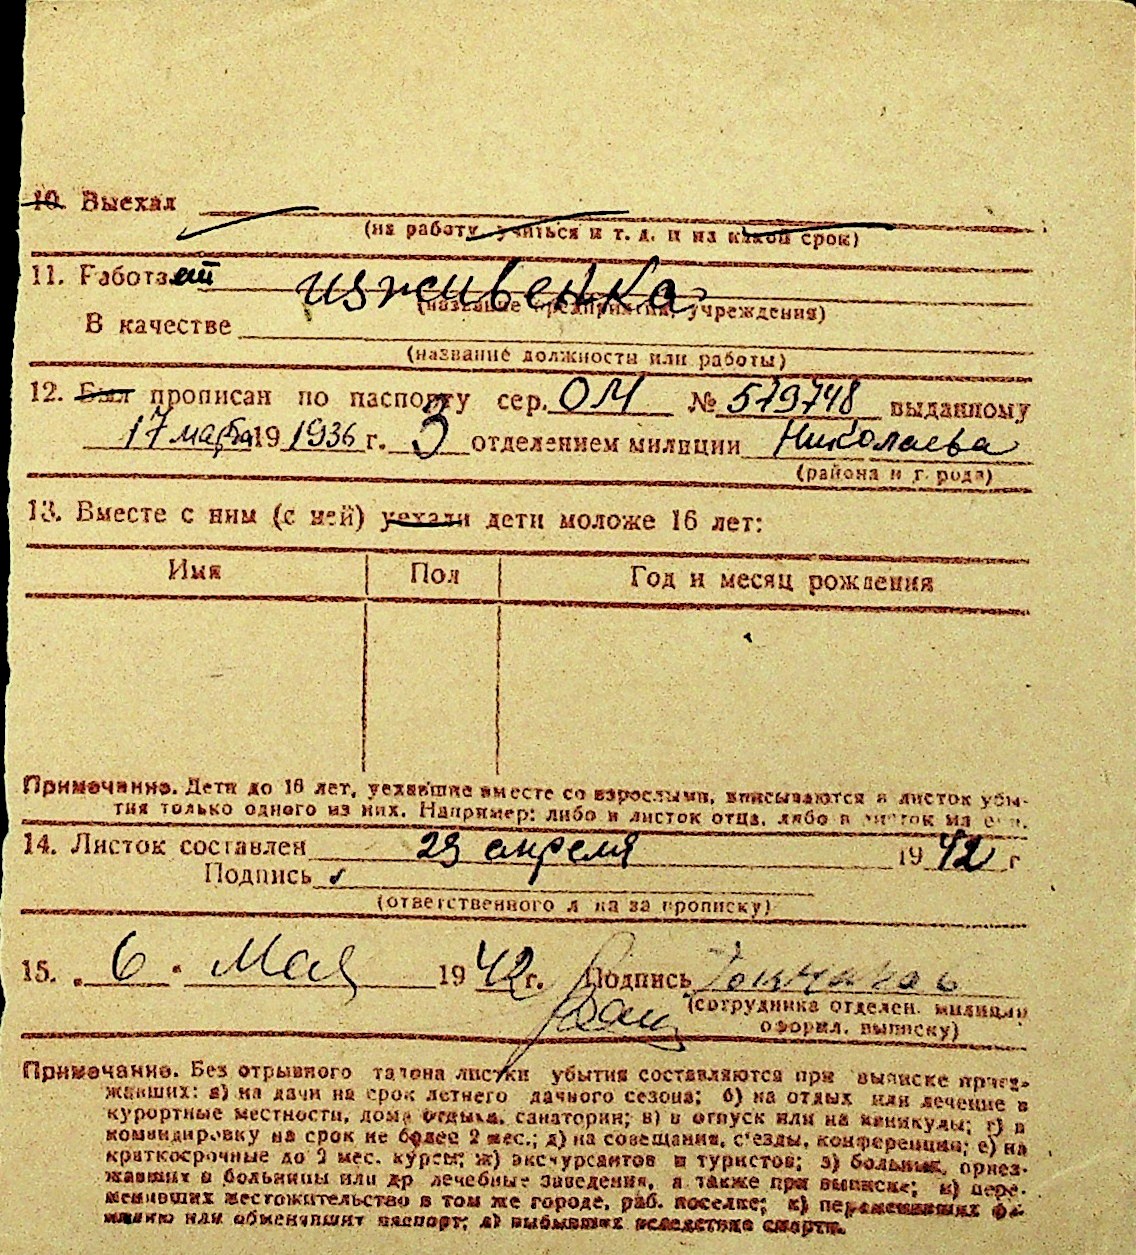 10. Выехал
(на работу, учиться и т. д. и на какой срок)
11. Работает иждивенка
(название предприятия, учреждения)
В качестве
(название должности или работы)
12. Был прописан по паспорту сер. ОМ № 579748 выданному
17 марта 19 1936 г. 3 отделением милиции Николаева
(района и города)
13. Вместе с ним (с ней) уехали дети моложе 16 лет:
Имя Пол Год и месяц рождения
Примечание. Дети до 16 лет, уехавшие вместе со взрослыми, вписываются в листок убы-
тия только одного из них. Например: либо в листок отца, либо в листок матери.
14. Листок составлен 23 апреля 1942 г
Подпись
(ответственного лица за прописку)
15. „ 6 " Мая 1942 г. Подпись
(сотрудника отделен. милиции
оформл. выписку)
Примечание. Без отрывного талона листки убытия составляются при выписке приез-
жавших: а) на дачи на срок летнего дачного сезона; б) на отдых или лечение в
курортные местности, дома отдыха, санатории; в) в отпуск или на каникулы; г) в
командировку на срок не более 2 мес.; д) на совещания, с'езды, конференции; е) на
краткосрочные до 2 мес. курсы; ж) экскурсантов и туристов; з) больных, приез-
жавших в больницы или др лечебные заведения, а также при выписке; и) пере-
менивших местожительство в том же городе, раб. поселке; к) переменивших фа-
милию или обменявших паспорт; л) выбывших вследствие смерти.